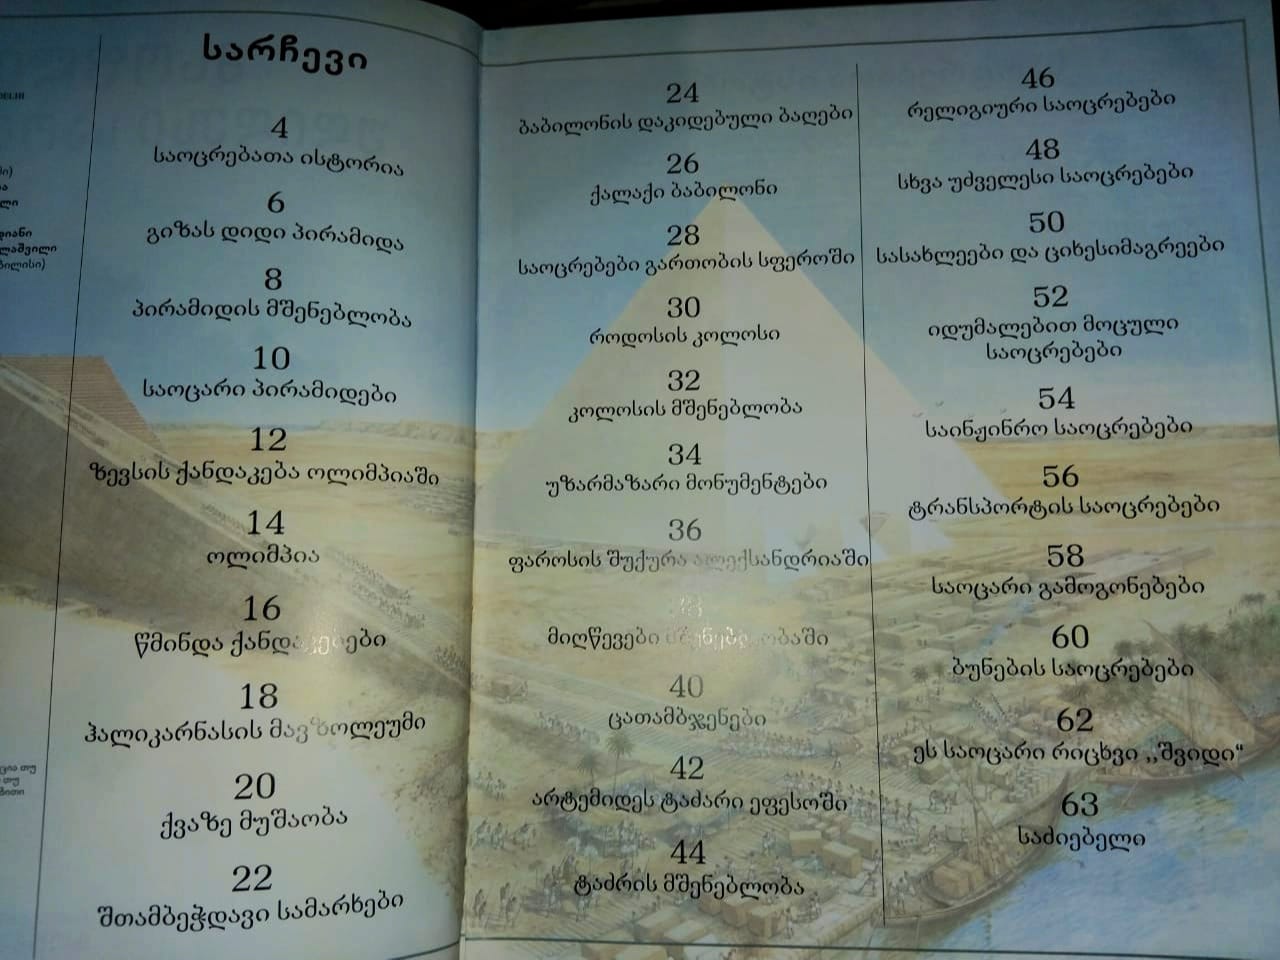 სარჩევი
4
საოცრებათა ისტორია
6
გიზას დიდი პირამიდა
8
პირამიდის მშენებლობა
10
საოცარი პირამიდები
12
ზევსის ქანდაკება ოლიმპიაში
14
ოლიმპია
16
წმინდა ქანდაკებები
18
ჰალიკარნასის მავზოლეუმი
20
ქვაზე მუშაობა
22
შთამბეჭდავი სამარხები
24
ბაბილონის დაკიდებული ბაღები
26
ქალაქი ბაბილონი
28
საოცრებები გართობის სფეროში
30
როდოსის კოლოსი
32
კოლოსის მშენებლობა
34
უზარმაზარი მონუმენტები
36
ფაროსის შუქურა ალექსანდრიაში
38
მიღწევები მშენებლობაში
40
ცათამბჯენები
42
არტემიდეს ტაძარი ეფესოში
44
ტაძრის მშენებლობა
46
რელიგიური საოცრებები
48
სხვა უძველესი საოცრებები
50
სასახლეები და ციხესიმაგრეები
52
იდუმალებით მოცული
საოცრებები
54
საინჟინრო საოცრებები
56
ტრანსპორტის საოცრებები
58
საოცარი გამოგონებები
60
ბუნების საოცრებები
62
ეს საოცარი რიცხვი ,,შვიდი“
63
საძიებელი